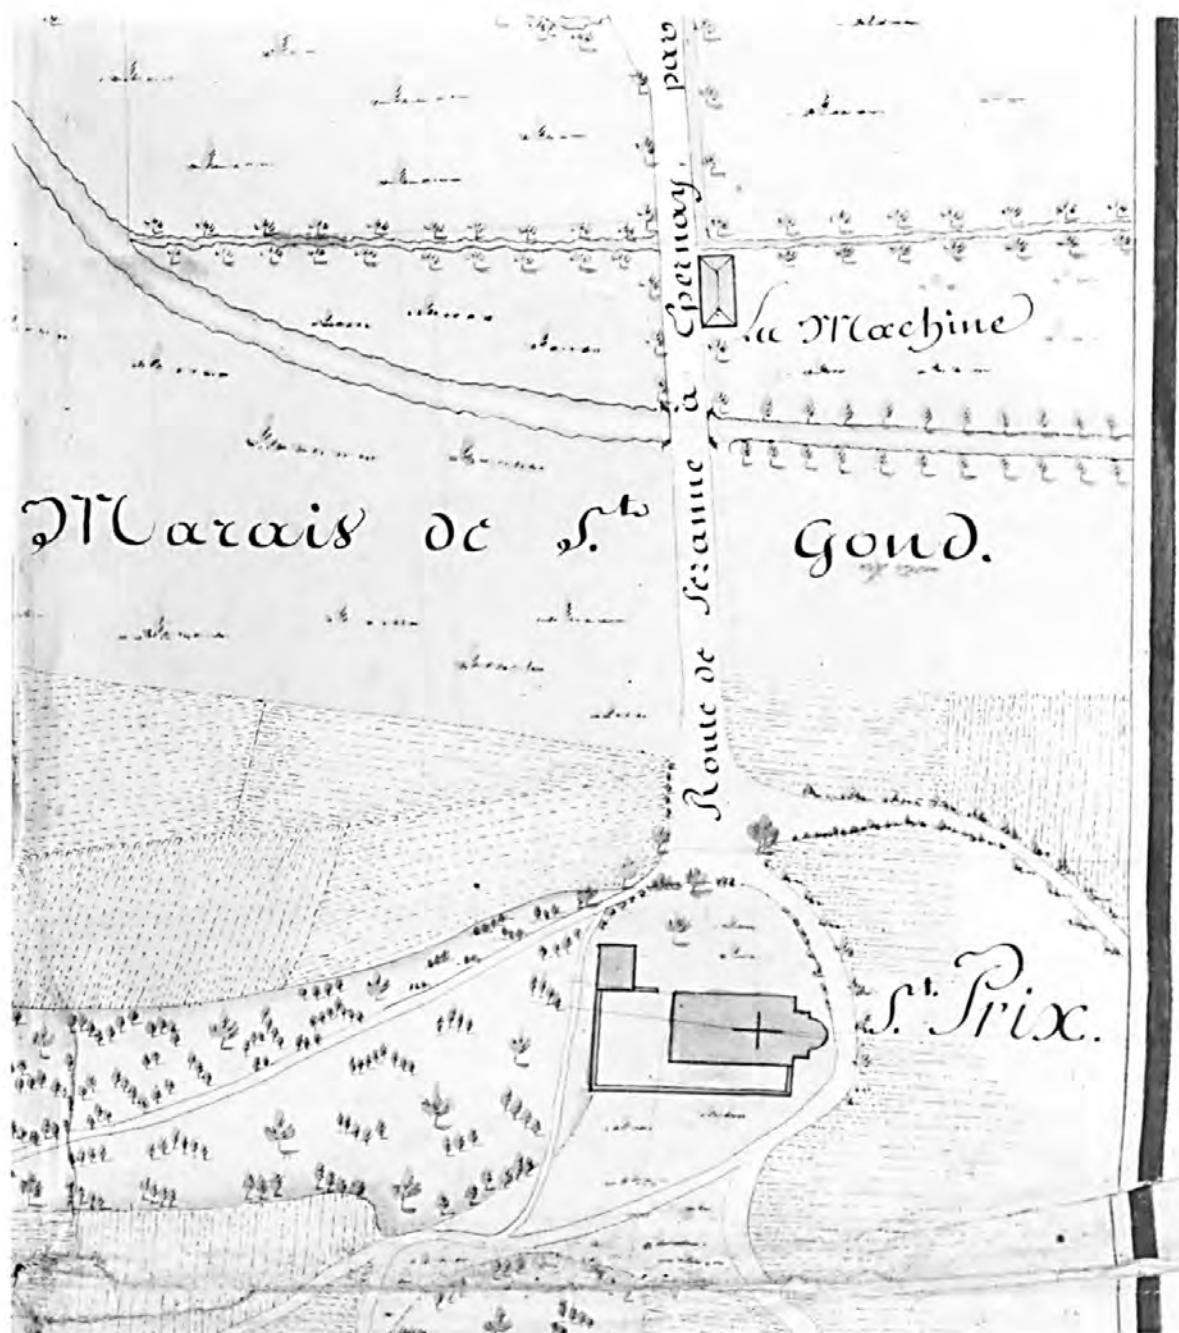 Route de Sezanne à Epernay par
La Machine
Marais de S.ts Gond.
S.t Prix.